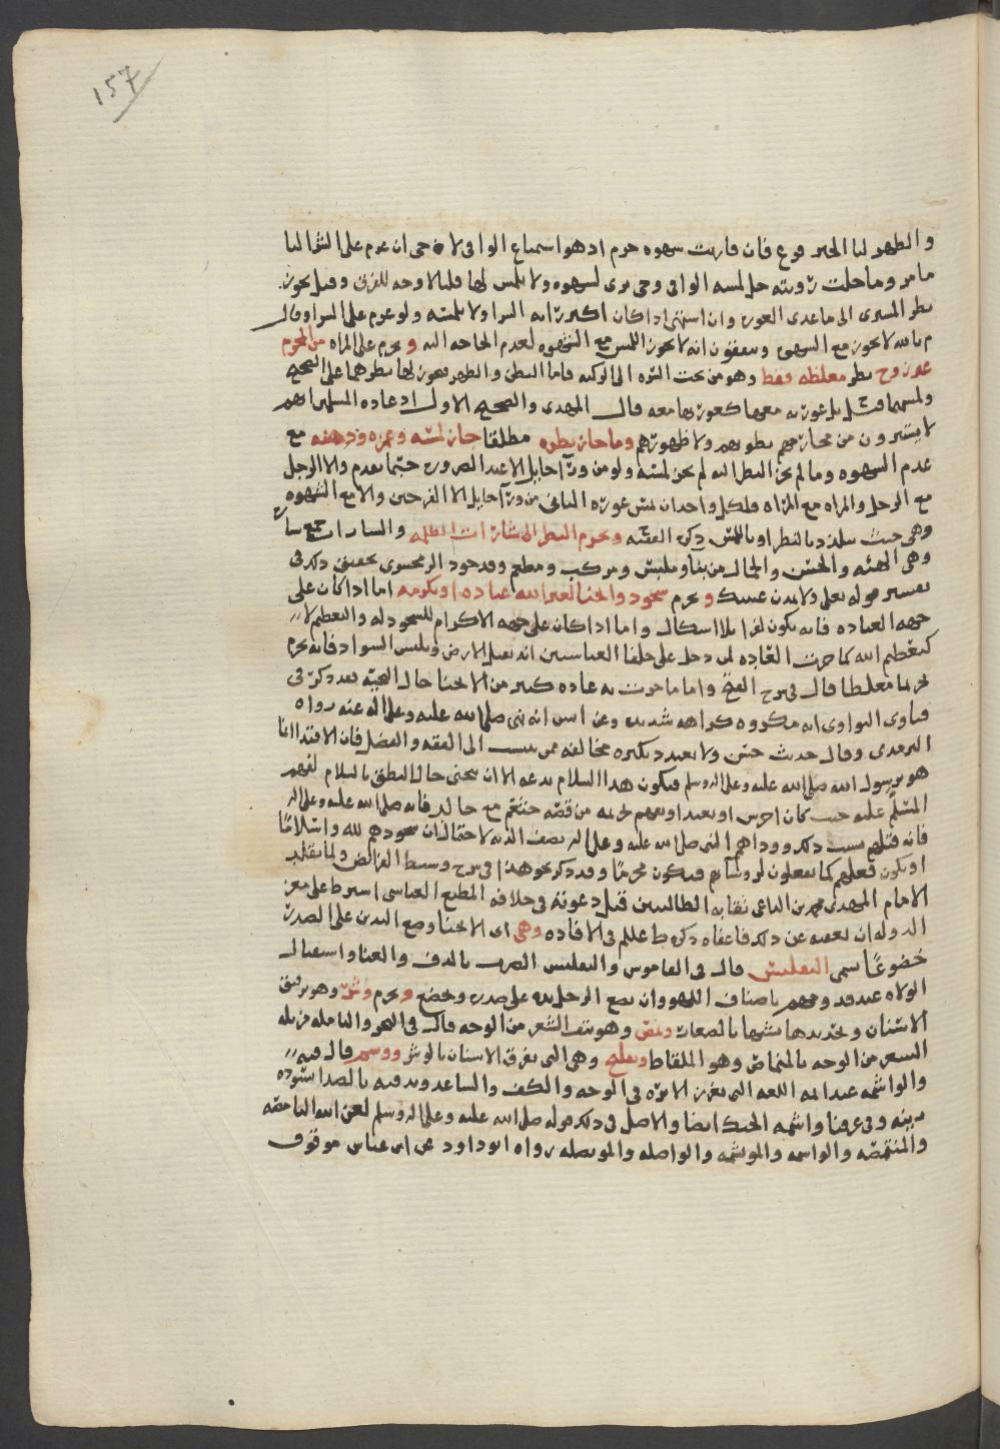 157
والظهر لنا الخبر فرع فان قارنت شهوه حرم اذ هو استماع الوافي لا حتى ان عزم على الشرا لنا
ما مر وما حلت رؤيته حل لمسه الوافي وحتى يرى لشهوه ولا يلمس لها قلنا لا وجه للفرق وقيل يجوز
نظر المشتري الى ما عدى العوره وان اشتهى اذا كان اكبر رايه الشرا ولا يلمسه ولو عزم على الشرا وقال
م بالله لا يجوز مع الشهوه ويتفقون انه لا يجوز اللمس مع الشهوه لعدم الحاجه اليه و يحرم على المراه من المحرم
نظر مغلظه فقط وهو من تحت السره الى الركبه فاما البطن والظهر فيجوز لها نظرهما على الصحيح
ولمسهما بل عورته معها كعورتها معه قال المهدي والصحيح الاول اذ عاده المسلمين انهم
لا يسترون من محارمهم بطونهم ولا ظهورهم وما جاز نظره مطلقا جاز لمسه وغمزه ودهنه مع
عدم الشهوه وما لم يجز النظر اليه لم يجز لمسه ولو من ورآ حايل الا عند الضروره حسبما تقدم والا الرجل
مع الرجل والمراه مع المراه فلكل واحد ان يمس عوره الثاني من ورآ حايل الا الفرجين والا مع الشهوه
وهي حيث يتلذذ بالنظر او باللمس ذكره الفقيه ويحرم النظر الى شارات الظلمه والشارات جمع شاره
وهي الهيئه والحسن والجمال من بنا وملبس ومركب ومطعم وقد جود الزمخشري تحقيق ذلك في
تفسير قوله تعلى ولا تمدن عينيك و يحرم سجود وانحنا لغير الله عباده او تكرمه اما اذا كان على
جهه العباده فانه يكون كفرا بلا اشكال واما اذا كان على جهه الاكرام للمسجود له والتعظيم لا
كتعظيم الله كما جرت العاده لمن دخل على خلفا العباسيين انه يقبل الارض ويلبس السواد فانه يحرم
تحريما مغلظا قال في شرح الفتح واما ما جرت به عاده كثير من الانحنا حال التحيه فقد ذكر في
فتاوى النواوي انه مكروه كراهه شديده وعن انس انه نهى صلى الله عليه وعلى اله عنه رواه
الترمذي وقال حديث حسن ولا يعتد بكثره مخالفه ممن ينسب الى الفقه والفضل فان الاقتدا انما
هو برسول الله صلى الله عليه وعلى اله وسلم فيكون هذا السلام بدعه الا ان ينحني حال النطق بالسلام لتفهيم
المسلم عليه حيث كان اخرس او بعيدا من قصه خثعم مع خالد فانه صلى الله عليه وعلى اله
فانه قتلهم بسبب ذلك ووداهم النبي صلى الله عليه وعلى اله بنصف الديه لاحتمال ان سجودهم لله واستلاما
او يكون فعلهم كما يفعلون لرؤسائهم فيكون محرما وقد ذكر نحو هذا في شرح وسيط الفرائض ولما تقلد
الامام المهدي محمد بن الداعي نقابه الطالبيين قبل دعوته في خلافه المطيع العباسي اشترط على معز
الدوله ان يعفيه عن ذلك فاعفاه ذكره ط عليلم في الافاده وهي اي الانحنا وضع اليدين على الصدر
خضوعا سمى التقليس قال في القاموس والتقليس الضرب بالدف والغنا واستقبال
الولاه عند قدومهم باصناف اللهو وان يضع الرجل يديه على صدره ويخضع و يحرم وشر وهو ترقيق
الاسنان وتحديدها تشبها بالصغار ونمص وهو نتف الشعر من الوجه قال في النحو والنامله مزيله
الشعر من الوجه بالمنماص وهو الملقاط وتفليج وهي التي تفرق الاسنان بالوشر ووسم قال فيه
والواشمه عند ايمه اللغه التي تغرز الابره في الوجه والكف والساعد وتذر فيه بالصدا تسوده
تزينه وفي عرفنا واشمه الحنك ايضا والاصل في ذلك قوله صلى الله عليه وعلى اله وسلم لعن الله النامصه
والمتنمصه والواشمه والموتشمه والواصله والموتصله رواه ابو داود عن ابن عباس موقوف